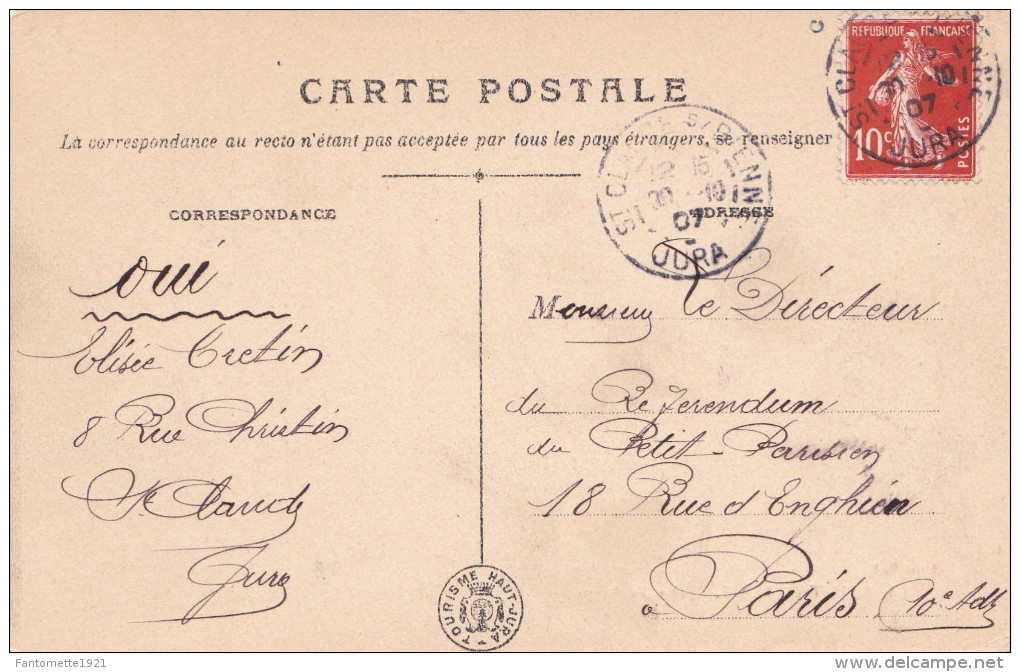 CARTE POSTALE
La correspondance au recto n'étant pas acceptée par tous les pays étrangers, se renseigner
RÉPUBLIQUE FRANÇAISE
10c POSTES
ST CLAUDE S/BIENNE
12 15
30 -10
07
JURA
CORRESPONDANCE
ADRESSE
oui
Elisée Cretin
8 Rue Christin
St Claude
Jura
Monsieur le Directeur
du Referendum
du Petit-Parisien
18 Rue d'Enghien
à Paris (10e
TOURISME HAUT-JURA
Fantomette1921
delcampe.net